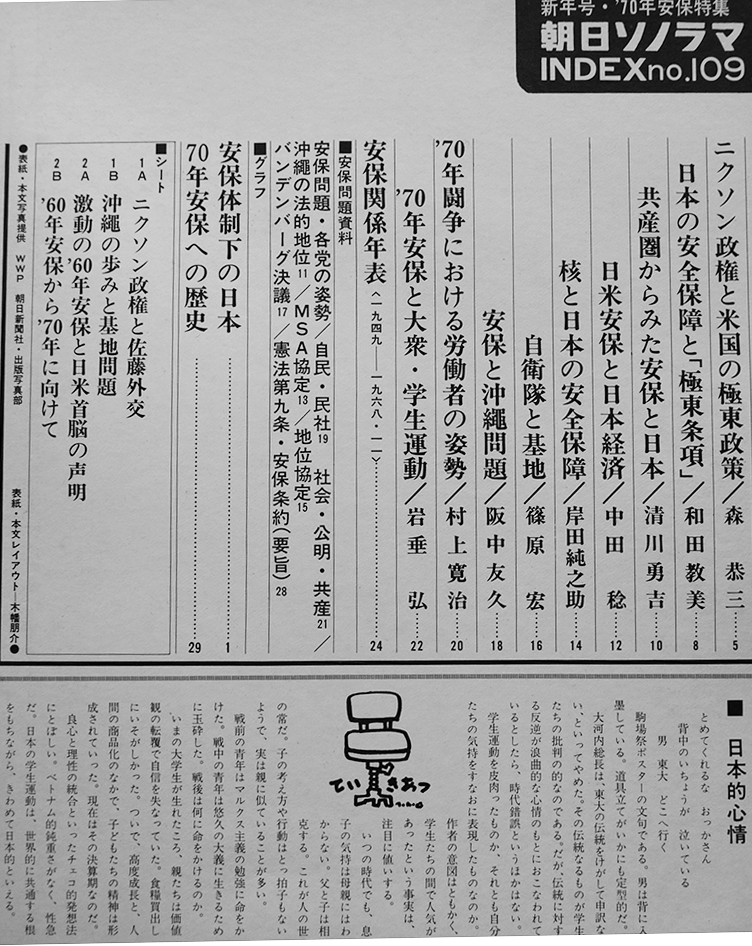 新年号・'70年安保特集
朝日ソノラマ
INDEXno.109
ニクソン政権と米国の極東政策／森　恭三……5
日本の安全保障と「極東条項」／和田教美……8
共産圏からみた安保と日本／清川勇吉……10
日米安保と日本経済／中田　稔……12
核と日本の安全保障／岸田純之助……14
自衛隊と基地／篠原　宏……16
安保と沖縄問題／阪中友久……18
'70年闘争における労働者の姿勢／村上寛治……20
'70年安保と大衆・学生運動／岩垂　弘……22
安保関係年表〈一九四九——一九六八・一一〉……24
■安保問題資料
安保問題・各党の姿勢／自民・民社19　社会・公明・共産21／
沖縄の法的地位11／MSA協定13／地位協定15
バンデンバーグ決議17／憲法第九条・安保条約（要旨）28
■グラフ
安保体制下の日本……1
70年安保への歴史……29
■シート
1A　ニクソン政権と佐藤外交
1B　沖縄の歩みと基地問題
2A　激動の'60年安保と日米首脳の声明
2B　'60年安保から'70年に向けて
●表紙・本文写真提供　WWP　朝日新聞社・出版写真部
表紙・本文レイアウト—木幡朋介●
■日本的心情
とめてくれるな　おっかさん
背中のいちょうが　泣いている
男　東大　どこへ行く
駒場祭ポスターの文句である。男は背に入
墨している。道具立てがいかにも定型的だ。
大河内総長は、東大の伝統をけがして申訳な
い、といってやめた。その伝統なるものが学生
たちの批判の的なのである。だが、伝統に対す
る反逆が浪曲的な心情のもとにおこなわれて
いるとしたら、時代錯誤というほかはない。
学生運動を皮肉ったものか、それとも自分
たちの気持をすなおに表現したものなのか。
作者の意図はともかく、
学生たちの間で人気が
あったという事実は、
注目に値いする。
いつの時代でも、息
子の気持は母親にはわ
からない。父と子は相
克する。これが人の世
の常だ。子の考え方や行動はとっ拍子もない
ようで、実は親に似ていることが多い。
戦前の青年はマルクス主義の勉強に命をか
けた。戦中の青年は悠久の大義に生きるため
に玉砕した。戦後は何に命をかけるのか。
いまの大学生が生れたころ、親たちは価値
観の転覆で自信を失なっていた。食糧買出し
にいそがしかった。ついで、高度成長と、人
間の商品化のなかで、子どもたちの精神は形
成されていった。現在はその決算期なのだ。
良心と理性の統合といったチェコ的発想法
にとぼしい。ベトナム的鈍重さがなく、性急
だ。日本の学生運動は、世界的に共通する根
をもちながら、きわめて日本的といえる。
ていきあつ